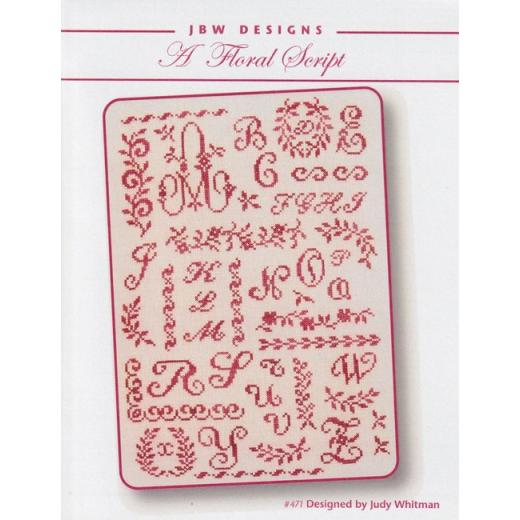 JBW DESIGNS
A Floral Script
A B D E
C
F G H I
J K N O P
L Q
M
R S T W
U
V
X Y Z
#471 Designed by Judy Whitman